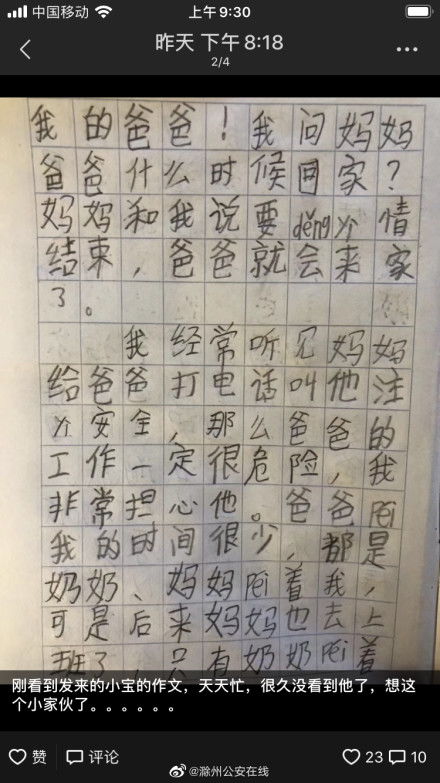 中国移动
上午 9:30
昨天 下午 8:18
2/4
我的爸爸！我问妈妈
爸爸什么时候回家？
妈妈和我说要děngyì情
结束，爸爸就会来家
了。
我经常听见妈妈
给爸爸打电话叫他注
yì安全，那么爸爸的
工作一定很危险，我
非常担心他。爸爸péi
我的时间很少，都是
奶奶、妈妈péi着我，
可是后来妈妈也去上
班了，只有奶奶péi着
刚看到发来的小宝的作文，天天忙，很久没看到他了，想这
个小家伙了。。。。。。
赞
评论
23
10
@滁州公安在线